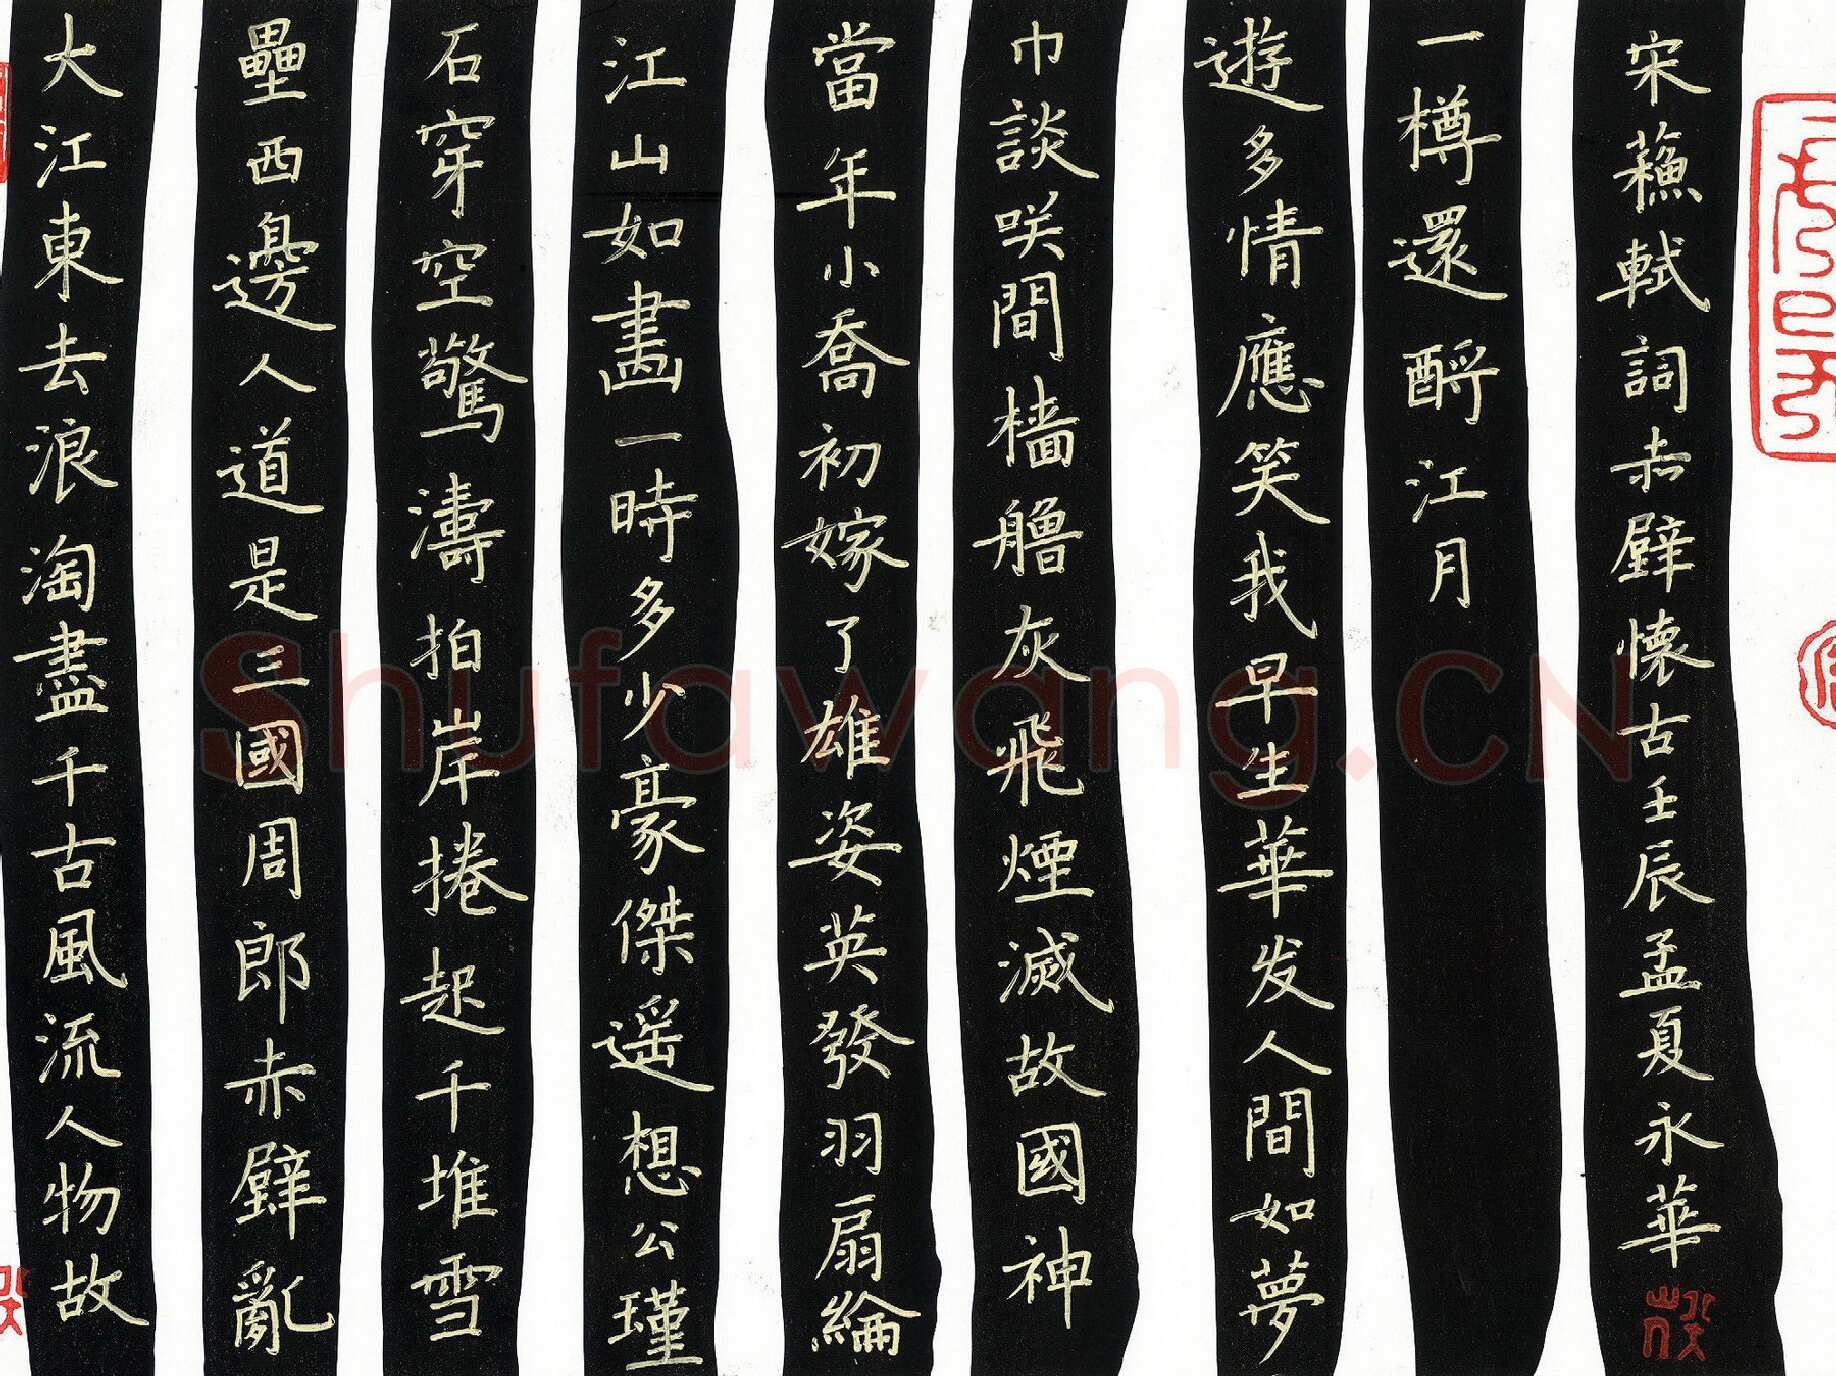 大江東去浪淘盡千古風流人物故
壘西邊人道是三國周郎赤壁亂
石穿空驚濤拍岸捲起千堆雪
江山如畫一時多少豪傑遥想公瑾
當年小喬初嫁了雄姿英發羽扇綸
巾談咲間檣艪灰飛煙滅故國神
遊多情應笑我早生華发人間如夢
一樽還酹江月
宋蘓軾詞赤壁懐古壬辰孟夏永華
Shufawang.CN